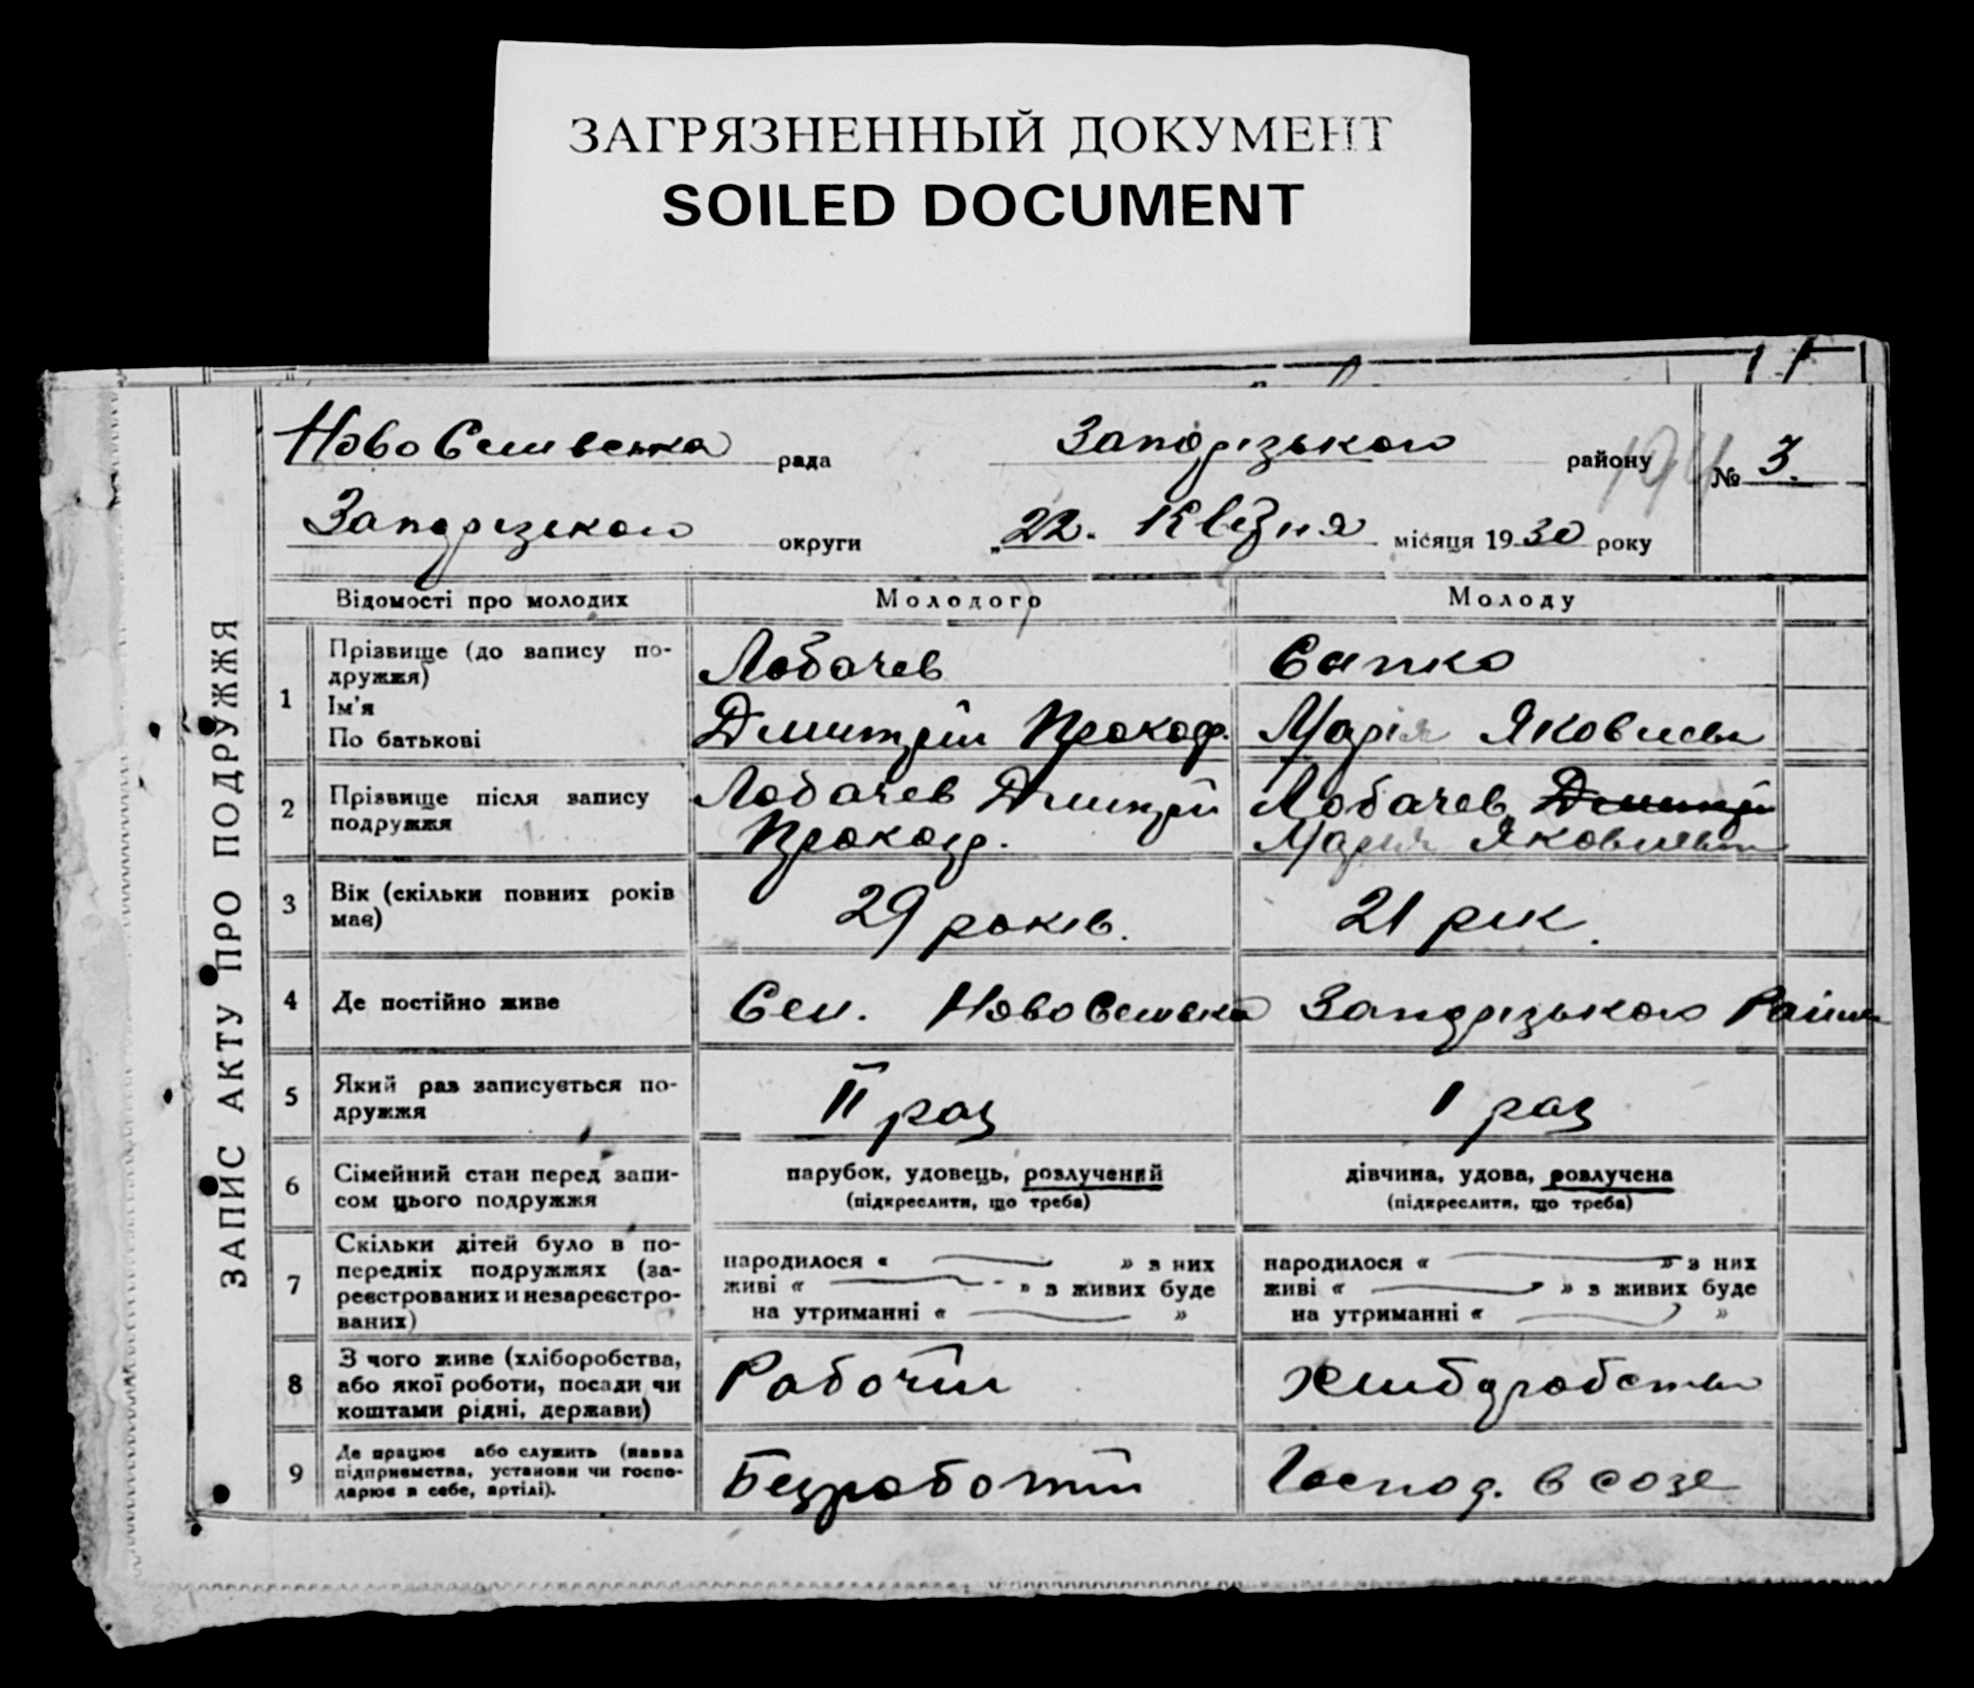 ЗАГРЯЗНЕННЫЙ ДОКУМЕНТ
SOILED DOCUMENT
ЗАПИС АКТУ ПРО ПОДРУЖЖЯ
НовоСеливська рада Запорізького району 194 № 3.
Запорізького округи „22. Квітня місяця 1930 року
Відомості про молодих Молодого Молоду
1 Прізвище (до запису по-
дружжя) Лобачев Сапко
Ім'я
По батькові Дмитрій Прокоф. Марія Яковлевн
2 Прізвище після запису
подружжя Лобачев Дмитрій Прокоф. Лобачев Дмитрій Марія Яковлевн
3 Вік (скільки повних років
має) 29 років. 21 рік.
4 Де постійно живе Сел. НовоСелівка Запорізького Району
5 Який раз записується по-
дружжя II раз I раз
6 Сімейний стан перед запи-
сом цього подружжя
парубок, удовець, розлучений
(підкреслити, що треба)
дівчина, удова, розлучена
(підкреслити, що треба)
7 Скільки дітей було в по-
передніх подружжях (за-
реєстрованих и незареєстро-
ваних)
народилося « » з них
живі « » з живих буде
на утриманні « »
народилося « » з них
живі « » з живих буде
на утриманні « »
8 З чого живе (хліборобства,
або якої роботи, посади чи
коштами рідні, держави)
Рабочий Хлиборобство
9 Де працює або служить (назва
підприємства, установи чи госпо-
дарює в себе, артілі).
Безработній Господ. в созе